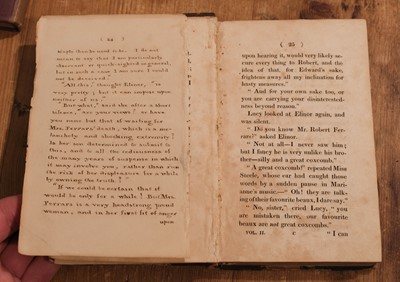 ( 24 )
ceeple than he used to be. I do not
mean to say that I am particularly
observant or quick-sighted in general,
but in such a case I am sure I could
not be deceived."
"All this," thought Elinor, "is
very pretty; but it can impose upon
neither of us."
"But what," said she after a short
silence, "are your views? or have
you none but that of waiting for
Mrs. Ferrars' death, which is a me-
lancholy and shocking extremity?
Is her son determined to submit to
this, and to all the tediousness of
the many years of suspense in which
it may involve you, rather than run
the risk of her displeasure for a while
by owning the truth?"
"If we could be certain that it
would be only for a while! But Mrs.
Ferrars is a very headstrong proud
woman, and in her first fit of anger
upon
( 25 )
upon hearing it, would very likely se-
cure every thing to Robert, and the
idea of that, for Edward's sake,
frightens away all my inclination for
hasty measures."
"And for your own sake too, or
you are carrying your disinterested-
ness beyond reason."
Lucy looked at Elinor again, and
was silent.
"Do you know Mr. Robert Fer-
rars?" asked Elinor.
"Not at all—I never saw him;
but I fancy he is very unlike his bro-
ther—silly and a great coxcomb."
"A great coxcomb!" repeated Miss
Steele, whose ear had caught those
words by a sudden pause in Mari-
anne's music.—"Oh! they are talk-
ing of their favourite beaux, I dare say."
"No, sister," cried Lucy, "you
are mistaken there, our favourite
beaux are not great coxcombs."
VOL. II. C "I can